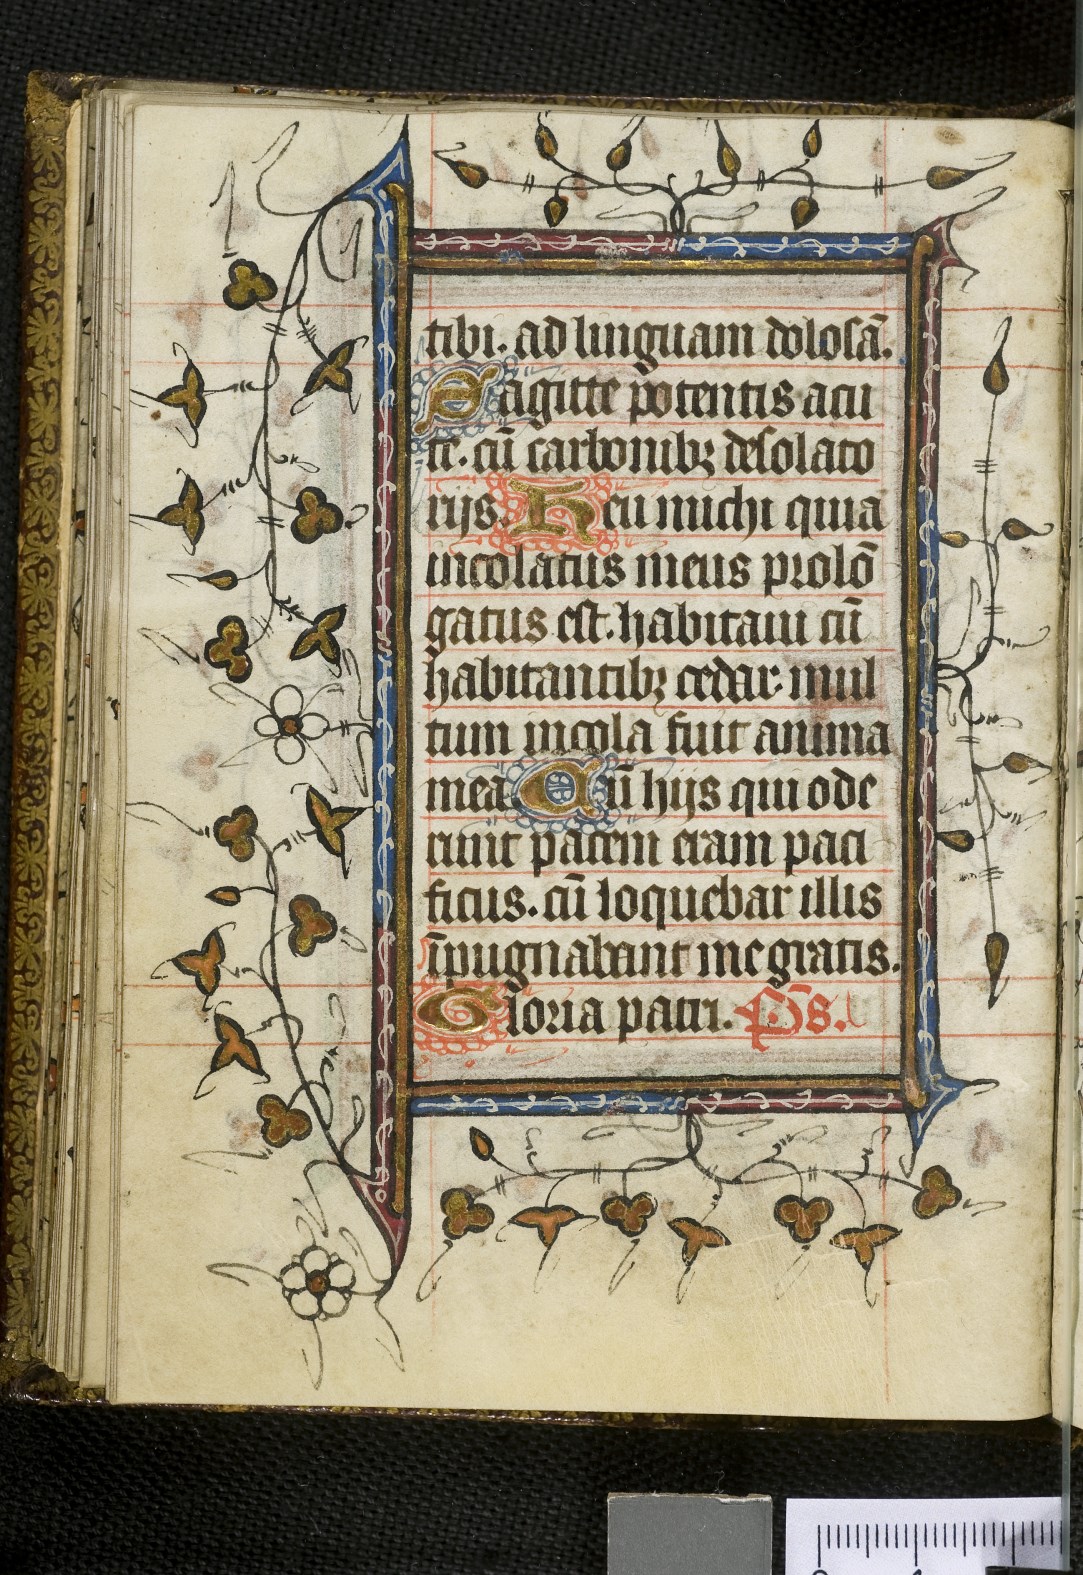 tibi. ad linguam dolosā.
Sagitte potentis acu
te. cū carbonibꝫ desolato
rijs. Heu michi quia
incolatus meus prolō
gatus est. habitaui cū
habitantibꝫ cedar. mul
tum incola fuit anima
mea. Cū hijs qui ode
runt pacem eram paci
ficus. cū loquebar illis
īpugnabant me gratis.
Gloria patri. Ps.